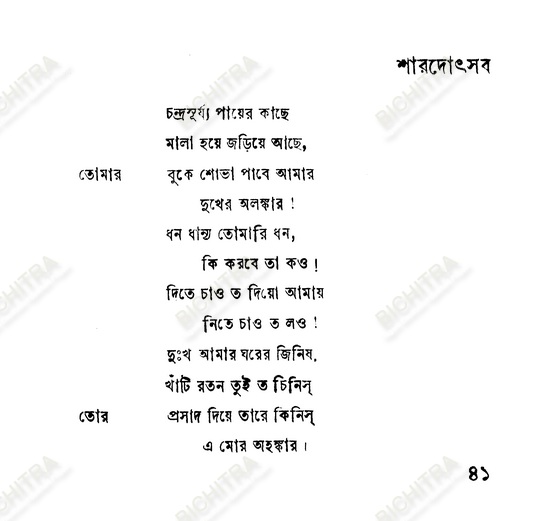 শারদোৎসব
চন্দ্রসূর্য্য পায়ের কাছে
মালা হয়ে জড়িয়ে আছে,
তোমার বুকে শোভা পাবে আমার
দুখের অলঙ্কার !
ধন ধান্য তোমারি ধন,
কি করবে তা কও !
দিতে চাও ত দিয়ো আমায়
নিতে চাও ত লও !
দুঃখ আমার ঘরের জিনিষ,
খাঁটি রতন তুই ত চিনিস্
তোর প্রসাদ দিয়ে তারে কিনিস্
এ মোর অহঙ্কার ।
৪১
BICHITRA
BICHITRA
BICHITRA
BICHITRA
BICHITRA
BICHITRA
BICHITRA
BICHITRA
BICHITRA